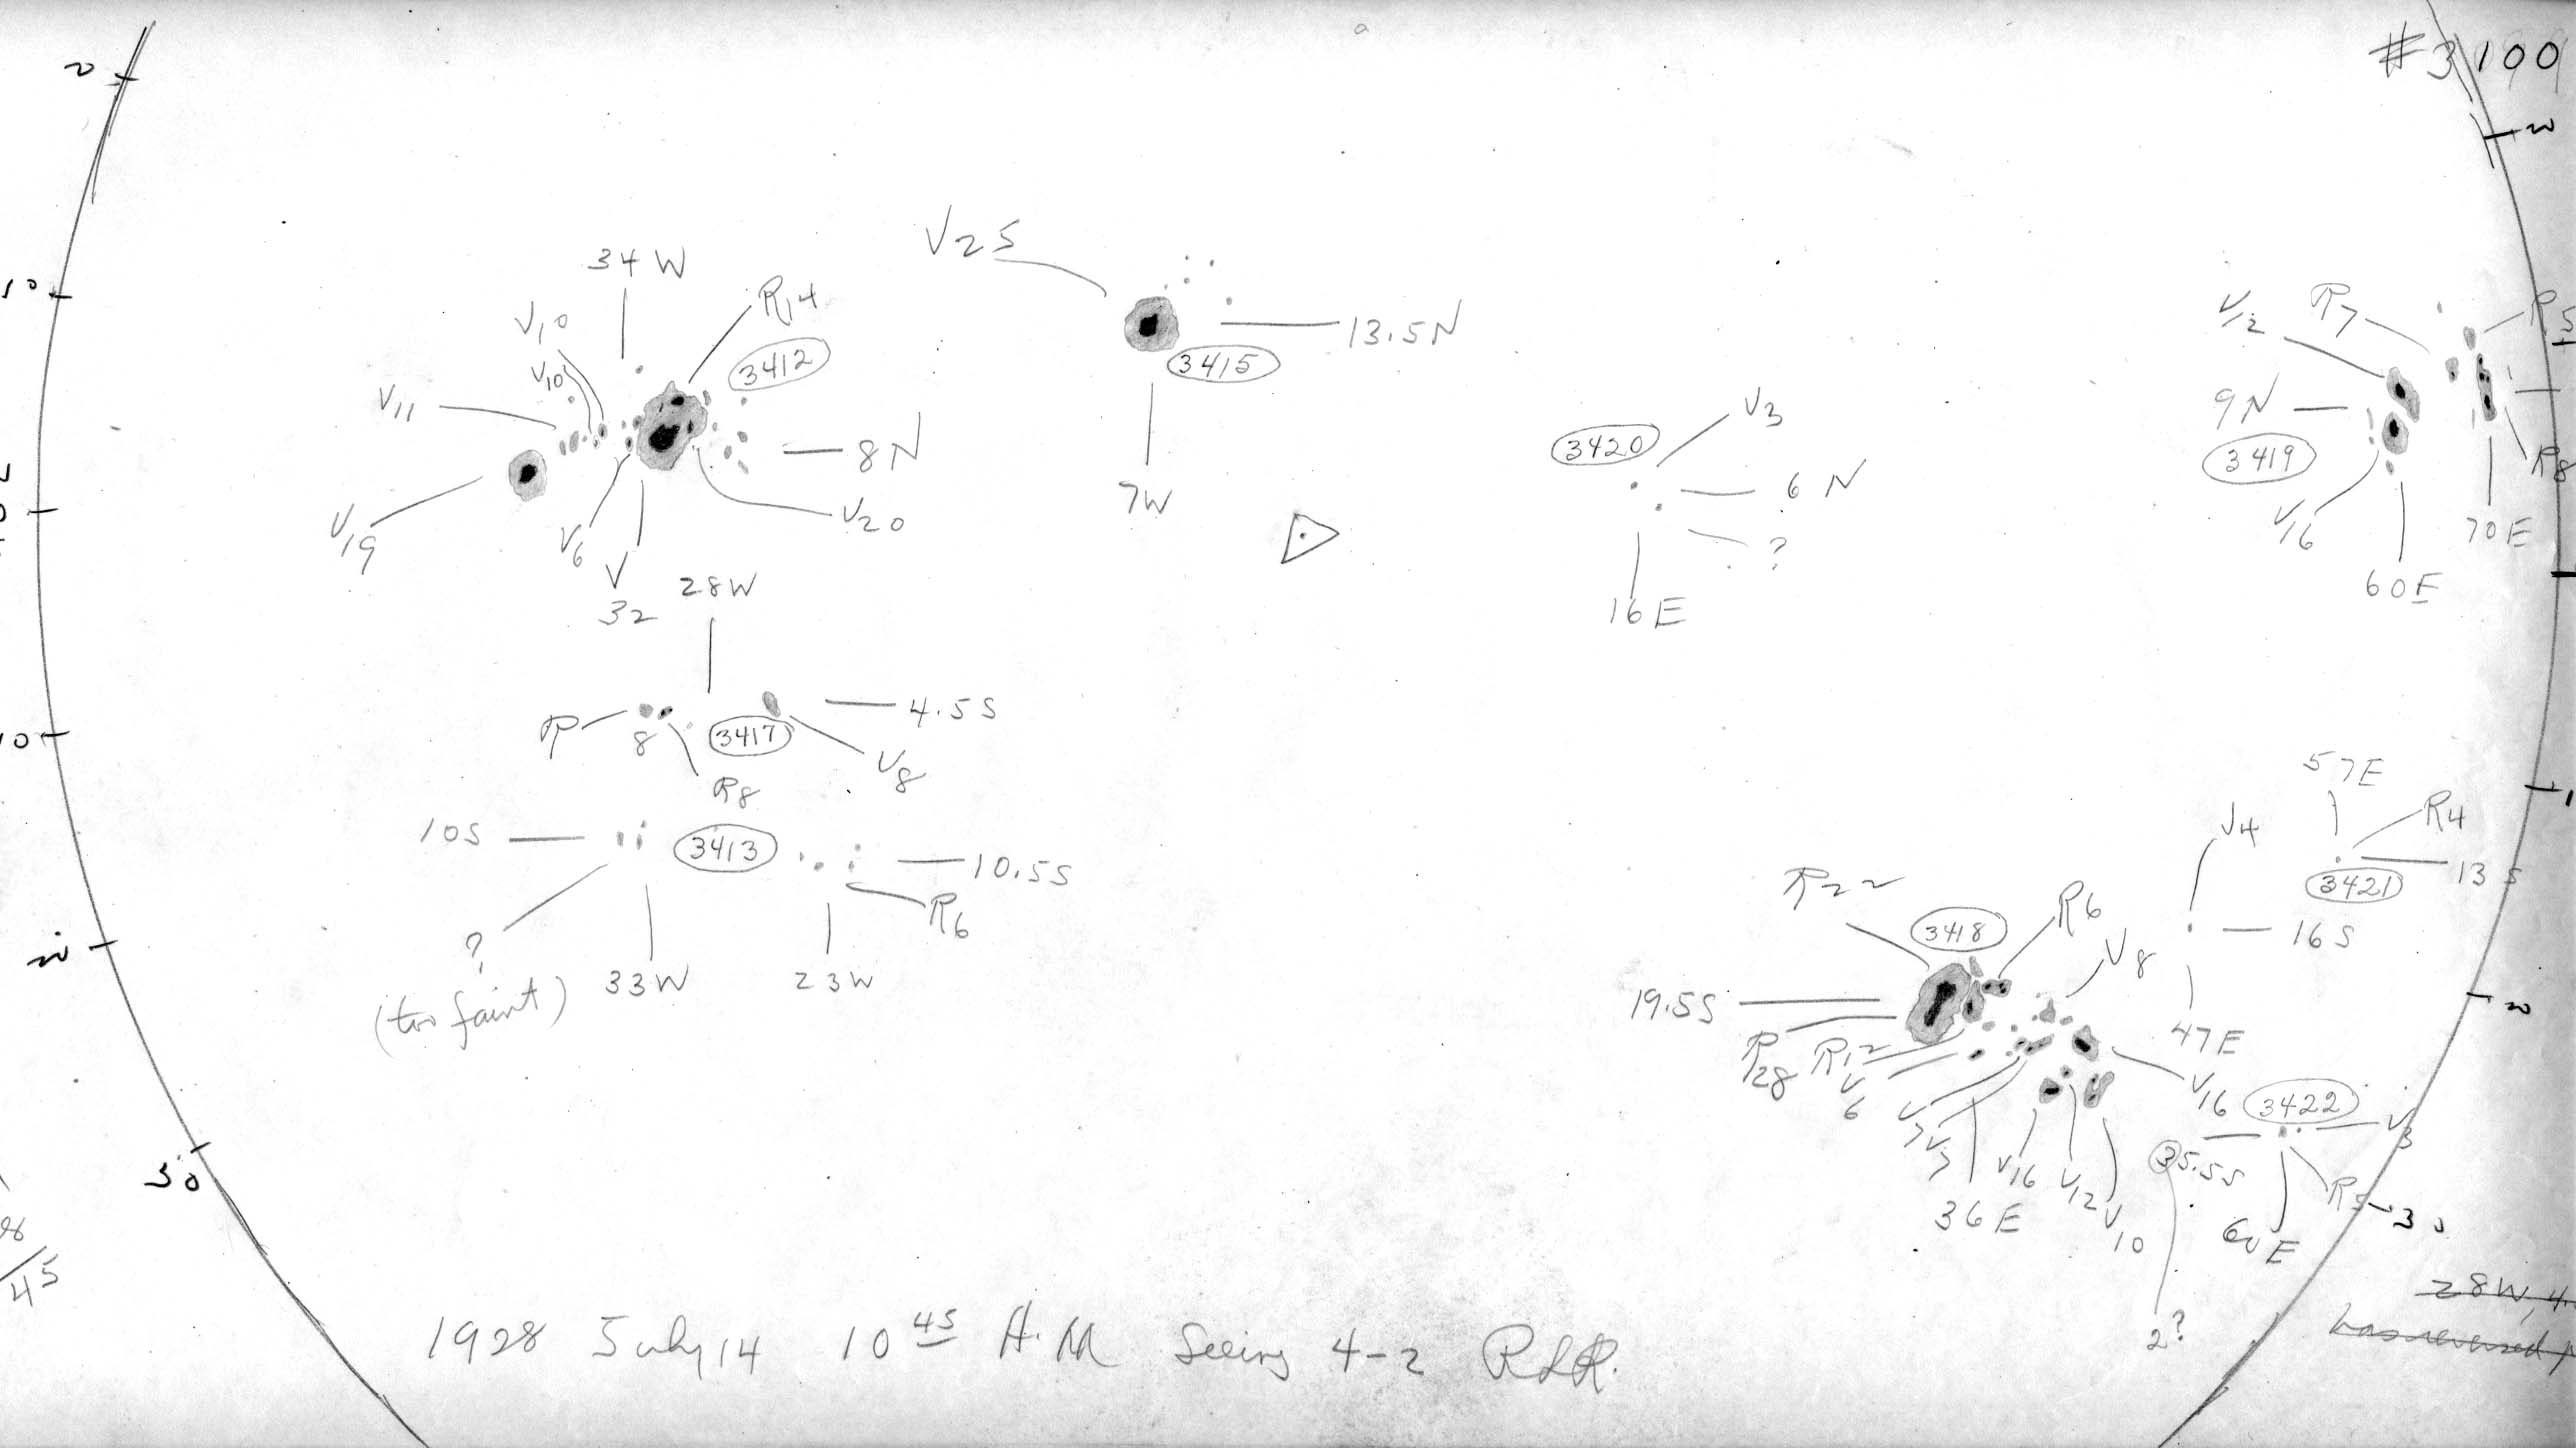 #3100
20
20
10
0
10
20
30
34W
V10
V10
R14
3412
V11
8N
V20
V19
V6
V
32
V25
13.5N
3415
7W
3420
V3
6N
?
16E
V12
R7
R5
9N
3419
R8
V16
70E
60E
28W
R
8
3417
4.5S
V8
R8
10S
3413
10.5S
R6
?
(too faint)
33W
23W
57E
V4
R4
3421
13S
16S
47E
R22
3418
R6
V8
19.5S
R28
R12
V6
V7
V7
36E
V16
V12
V10
V16
3422
V3
35.5S
R5
60E
20
30
2?
8
/45
28W, 4.
was reversed
1928 July 14 10 45 A.M Seeing 4-2 RLR.